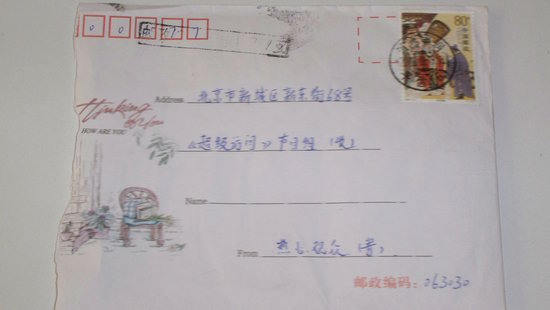 80分
中国邮政
Thinking
of You
HOW ARE YOU
Address 北京市新城区新东街68号
《超级访问》节目组（收）
Name
From 热心观众（寄）
邮政编码：063030